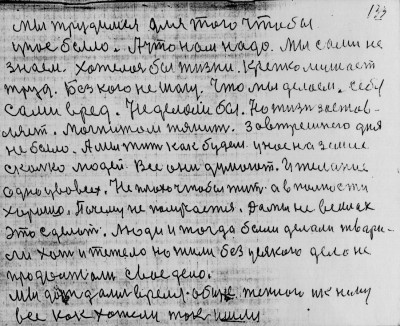 123
мы трудимся для того чтобы
иное было. А что нам надо. Мы сами не
знаем. Хотелось бы жизни. Крепко мешает
труд. Без кого не шагу. Что мы делаем. себе
сами вред. Не делай бы. Но жизнь застав-
ляет. Магнитом тянит. Завтрешнего дня
не было. А ми жит как будем иное на земле
сколко людей. Все они думают. И желание
одно у всех. Не плохо чтобы жить а в полности
хорошо. Почему не получается. Дали же веках
это сделат. Люди и тогда были делали твари-
ли хот и тепело но жили без всякого дело не
продолжали свое дело.
мы дождали время общ тенного ик нему
все как хотели так шли